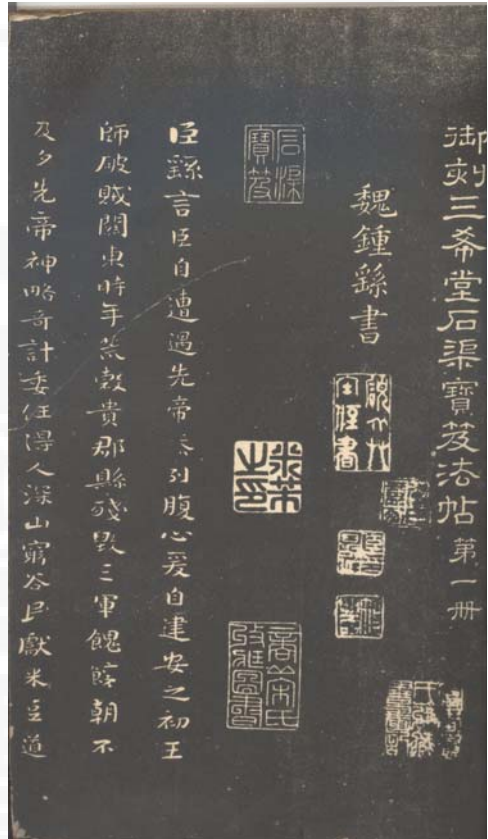 御刻三希堂石渠寶笈法帖 第一册
魏鍾繇書
石渠寶笈
臣繇言臣自遭遇先帝忝列腹心爰自建安之初王
師破賊關東時年荒穀貴郡縣殘毀三軍餽饟朝不
及夕先帝神略奇計委任得人深山窮谷民獻米豆道